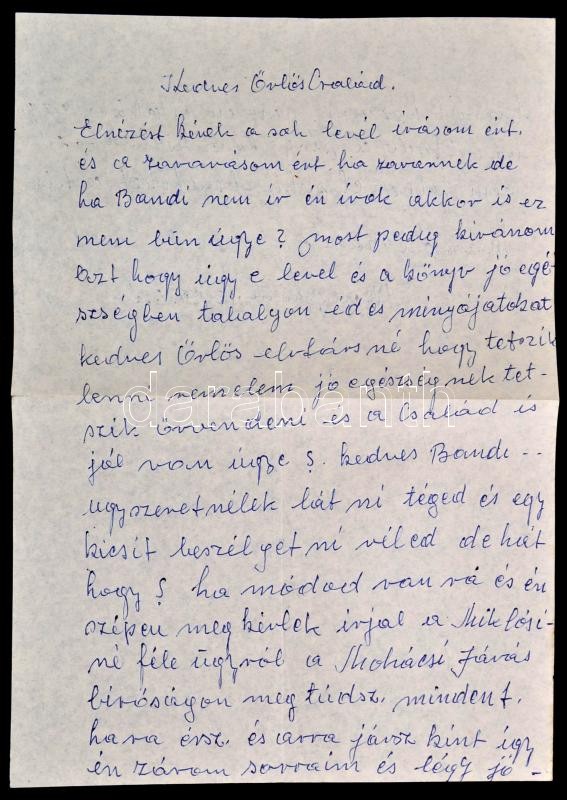 Kedves Őrlős Család.
Elnézést kérek a sok levél irásom ért.
és a zavarásom ért ha zavarnék de
ha Bandi nem ir én irok akkor is ez
nem bün ugye? most pedig kivánom
azt hogy úgy e level és a könyv jó egé-
szségben talalyon édes minyájatokat
kedves Őrlős elvtársné hogy tetszik
lenni remelem jó egészségnek tet-
szik örvendeni és a Család is
jól van ugye ? kedves Bandi --
ugyszeretnélek lát ni téged és egy
kicsit beszélget ni véled de hát
hogy ? ha módod van rá és én
szépen meg kérlek irjal a Miklósi-
né féle ügyről a Mohácsi Járás
biróságon meg tudsz. mindent.
ha ra érsz. és arra jársz kint úgy
én zárom sorraim és légy jó -
darabanth